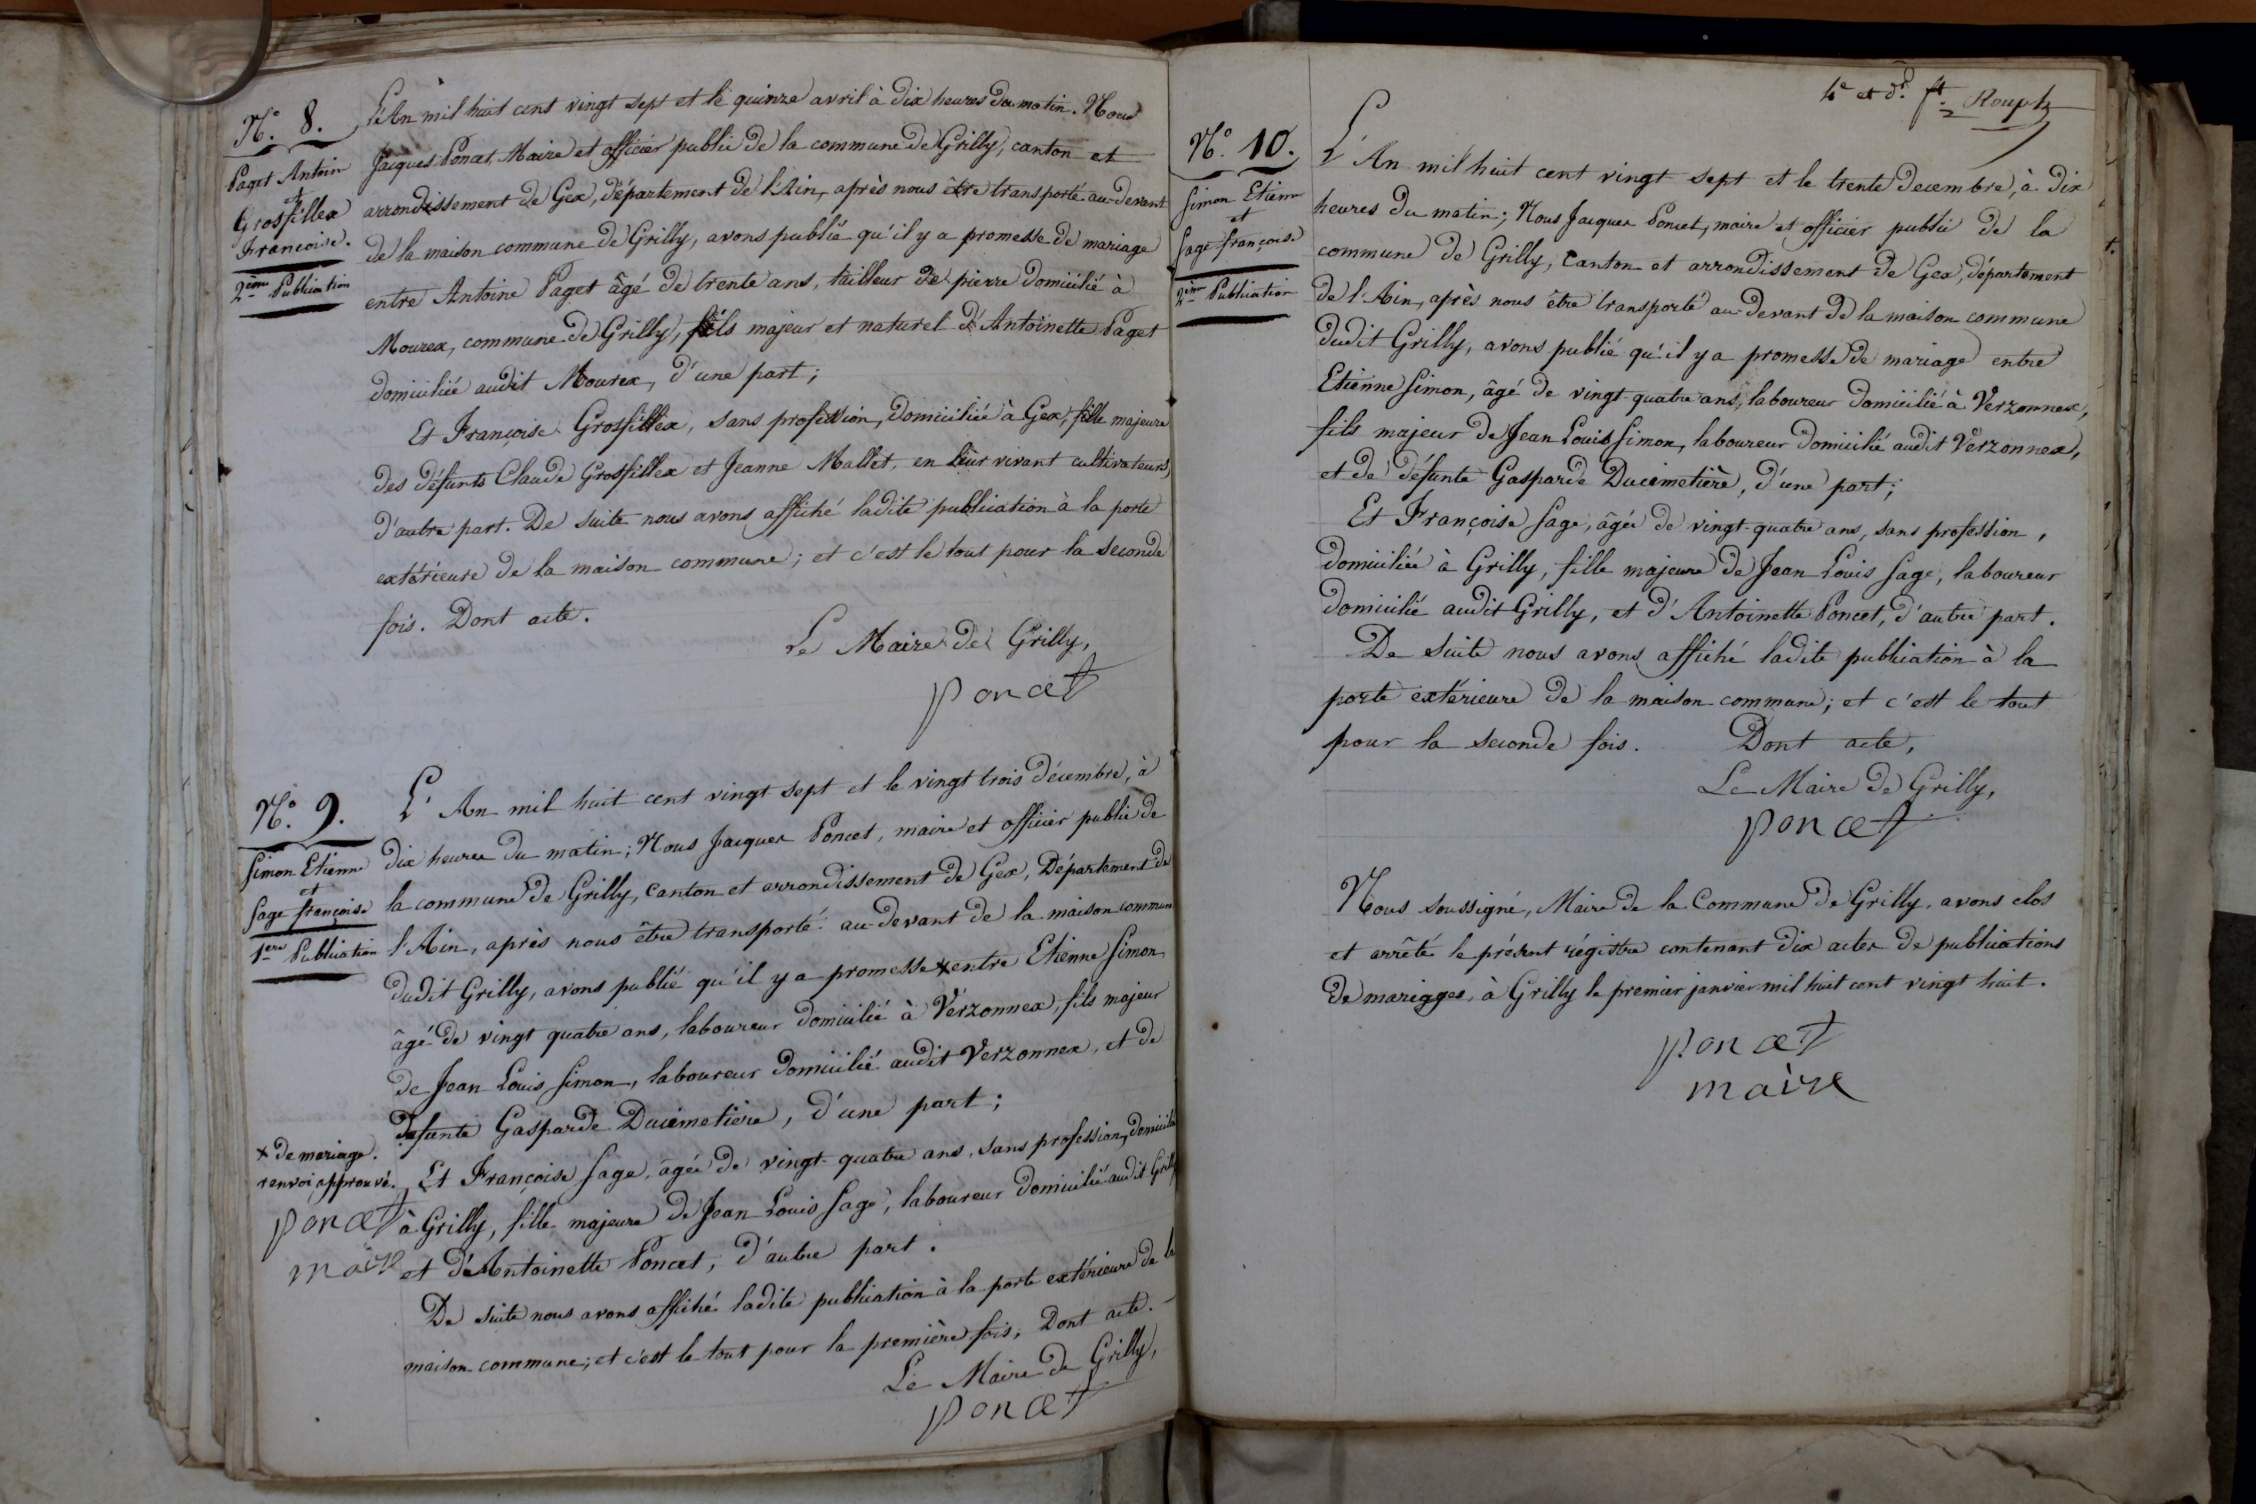 N.° 8.
Paget Antoine
et
Grosfillex
Françoise.
2ème Publication
L'An mil huit cent vingt sept et le quinze avril à dix heures du matin. Nous
Jacques Poncet, Maire et officier public de la commune de Grilly, canton et
arrondissement de Gex, département de l'Ain, après nous être transporté au-devant
de la maison commune de Grilly, avons publié qu'il y a promesse de mariage
entre Antoine Paget âgé de trente ans, tailleur de pierre domicilié à
Mourex, commune de Grilly, fils majeur et naturel d'Antoinette Paget
domiciliée audit Mourex, d'une part;
Et Françoise Grosfillex, sans profession, domiciliée à Gex, fille majeure
des défunts Claude Grosfillex et Jeanne Mallet, en leur vivant cultivateurs,
d'autre part. De suite nous avons affiché ladite publication à la porte
extérieure de la maison commune; et c'est le tout pour la seconde
fois. Dont acte.
Le Maire de Grilly,
Poncet
N.° 9.
Simon Etienne
et
Sage françoise
1ère Publication
L'An mil huit cent vingt sept et le vingt trois décembre, à
dix heures du matin; Nous Jacques Poncet, maire et officier public de
la commune de Grilly, canton et arrondissement de Gex, Département de
l'Ain, après nous être transporté au-devant de la maison commune
dudit Grilly, avons publié qu'il y a promesse x entre Etienne Simon
âgé de vingt quatre ans, laboureur domicilié à Verzonnex, fils majeur
de Jean Louis Simon, laboureur domicilié audit Verzonnex, et de
défunte Gasparde Ducimetière, d'une part;
Et Françoise Sage, âgée de vingt-quatre ans, sans profession, domiciliée
à Grilly, fille majeure de Jean Louis Sage, laboureur domicilié audit Grilly
et d'Antoinette Poncet, d'autre part.
De suite nous avons affiché ladite publication à la porte extérieure de la
maison commune; et c'est le tout pour la première fois, Dont acte.
Le Maire de Grilly,
Poncet
x de mariage.
renvoi approuvé.
Poncet
maire
N.° 10.
Simon Etienne
et
Sage françoise
2ème Publication
L'An mil huit cent vingt sept et le trente decembre, à dix
heures du matin; Nous Jacques Poncet, maire et officier public de la
commune de Grilly, Canton et arrondissement de Gex, département
de l'Ain, après nous être transporté au-devant de la maison commune
dudit Grilly, avons publié qu'il y a promesse de mariage entre
Etienne Simon, âgé de vingt-quatre ans, laboureur domicilié à Verzonnex,
fils majeur de Jean Louis Simon, laboureur domicilié audit Verzonnex,
et de défunte Gasparde Ducimetière, d'une part;
Et Françoise Sage, âgée de vingt-quatre ans, sans profession,
domiciliée à Grilly, fille majeure de Jean Louis Sage, laboureur
domicilié audit Grilly, et d'Antoinette Poncet, d'autre part.
De suite nous avons affiché ladite publication à la
porte extérieure de la maison commune; et c'est le tout
pour la seconde fois. Dont acte,
Le Maire de Grilly,
Poncet
Nous soussigné, Maire de la Commune de Grilly, avons clos
et arrêté le présent régistre contenant dix actes de publications
de mariages, à Grilly le premier janvier mil huit cent vingt huit.
Poncet
maire